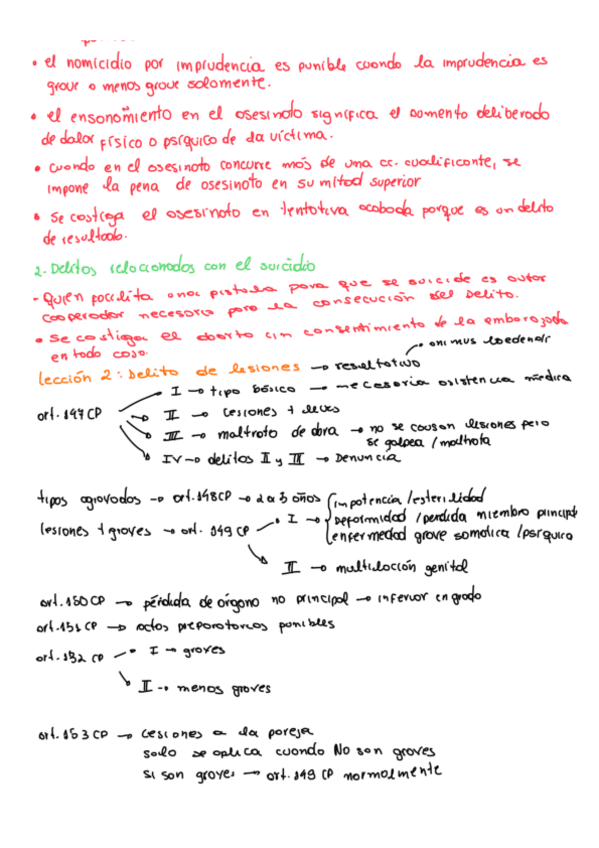 • el homicidio por imprudencia es punible cuando la imprudencia es
grave o menos grave solamente.
• el ensañamiento en el asesinato significa el aumento deliberado
de dolor físico o psíquico de la víctima.
• cuando en el asesinato concurre más de una cc. cualificante, se
impone la pena de asesinato en su mitad superior
• Se castiga el asesinato en tentativa acabada porque es un delito
de resultado.
2- Delitos relacionados con el suicidio
- Quien facilita una pistola para que se suicide es autor
cooperador necesario para la consecución del delito.
• Se castiga el aborto sin consentimiento de la embarazada
en todo caso.
→ animus laedendi
lección 2: Delito de lesiones → resultativo
art. 147 CP
I → tipo básico → necesaria asistencia médica
II → lesiones + leves
III → maltrato de obra → no se causan lesiones pero
se golpea / maltrata
IV → delitos II y III → Denuncia
tipos agravados → art. 148 CP → 2 a 5 años
lesiones + graves → art. 149 CP
I → impotencia / esterilidad
Deformidad / perdida miembro principal
enfermedad grave somatica / psiquica
II → mutilación genital
art. 150 CP → pérdida de órgano no principal → inferior en grado
art. 151 CP → actos preparatorios punibles
art. 152 CP
I → graves
II → menos graves
art. 153 CP → Lesiones a la pareja
solo se aplica cuando No son graves
si son graves → art. 149 CP normalmente